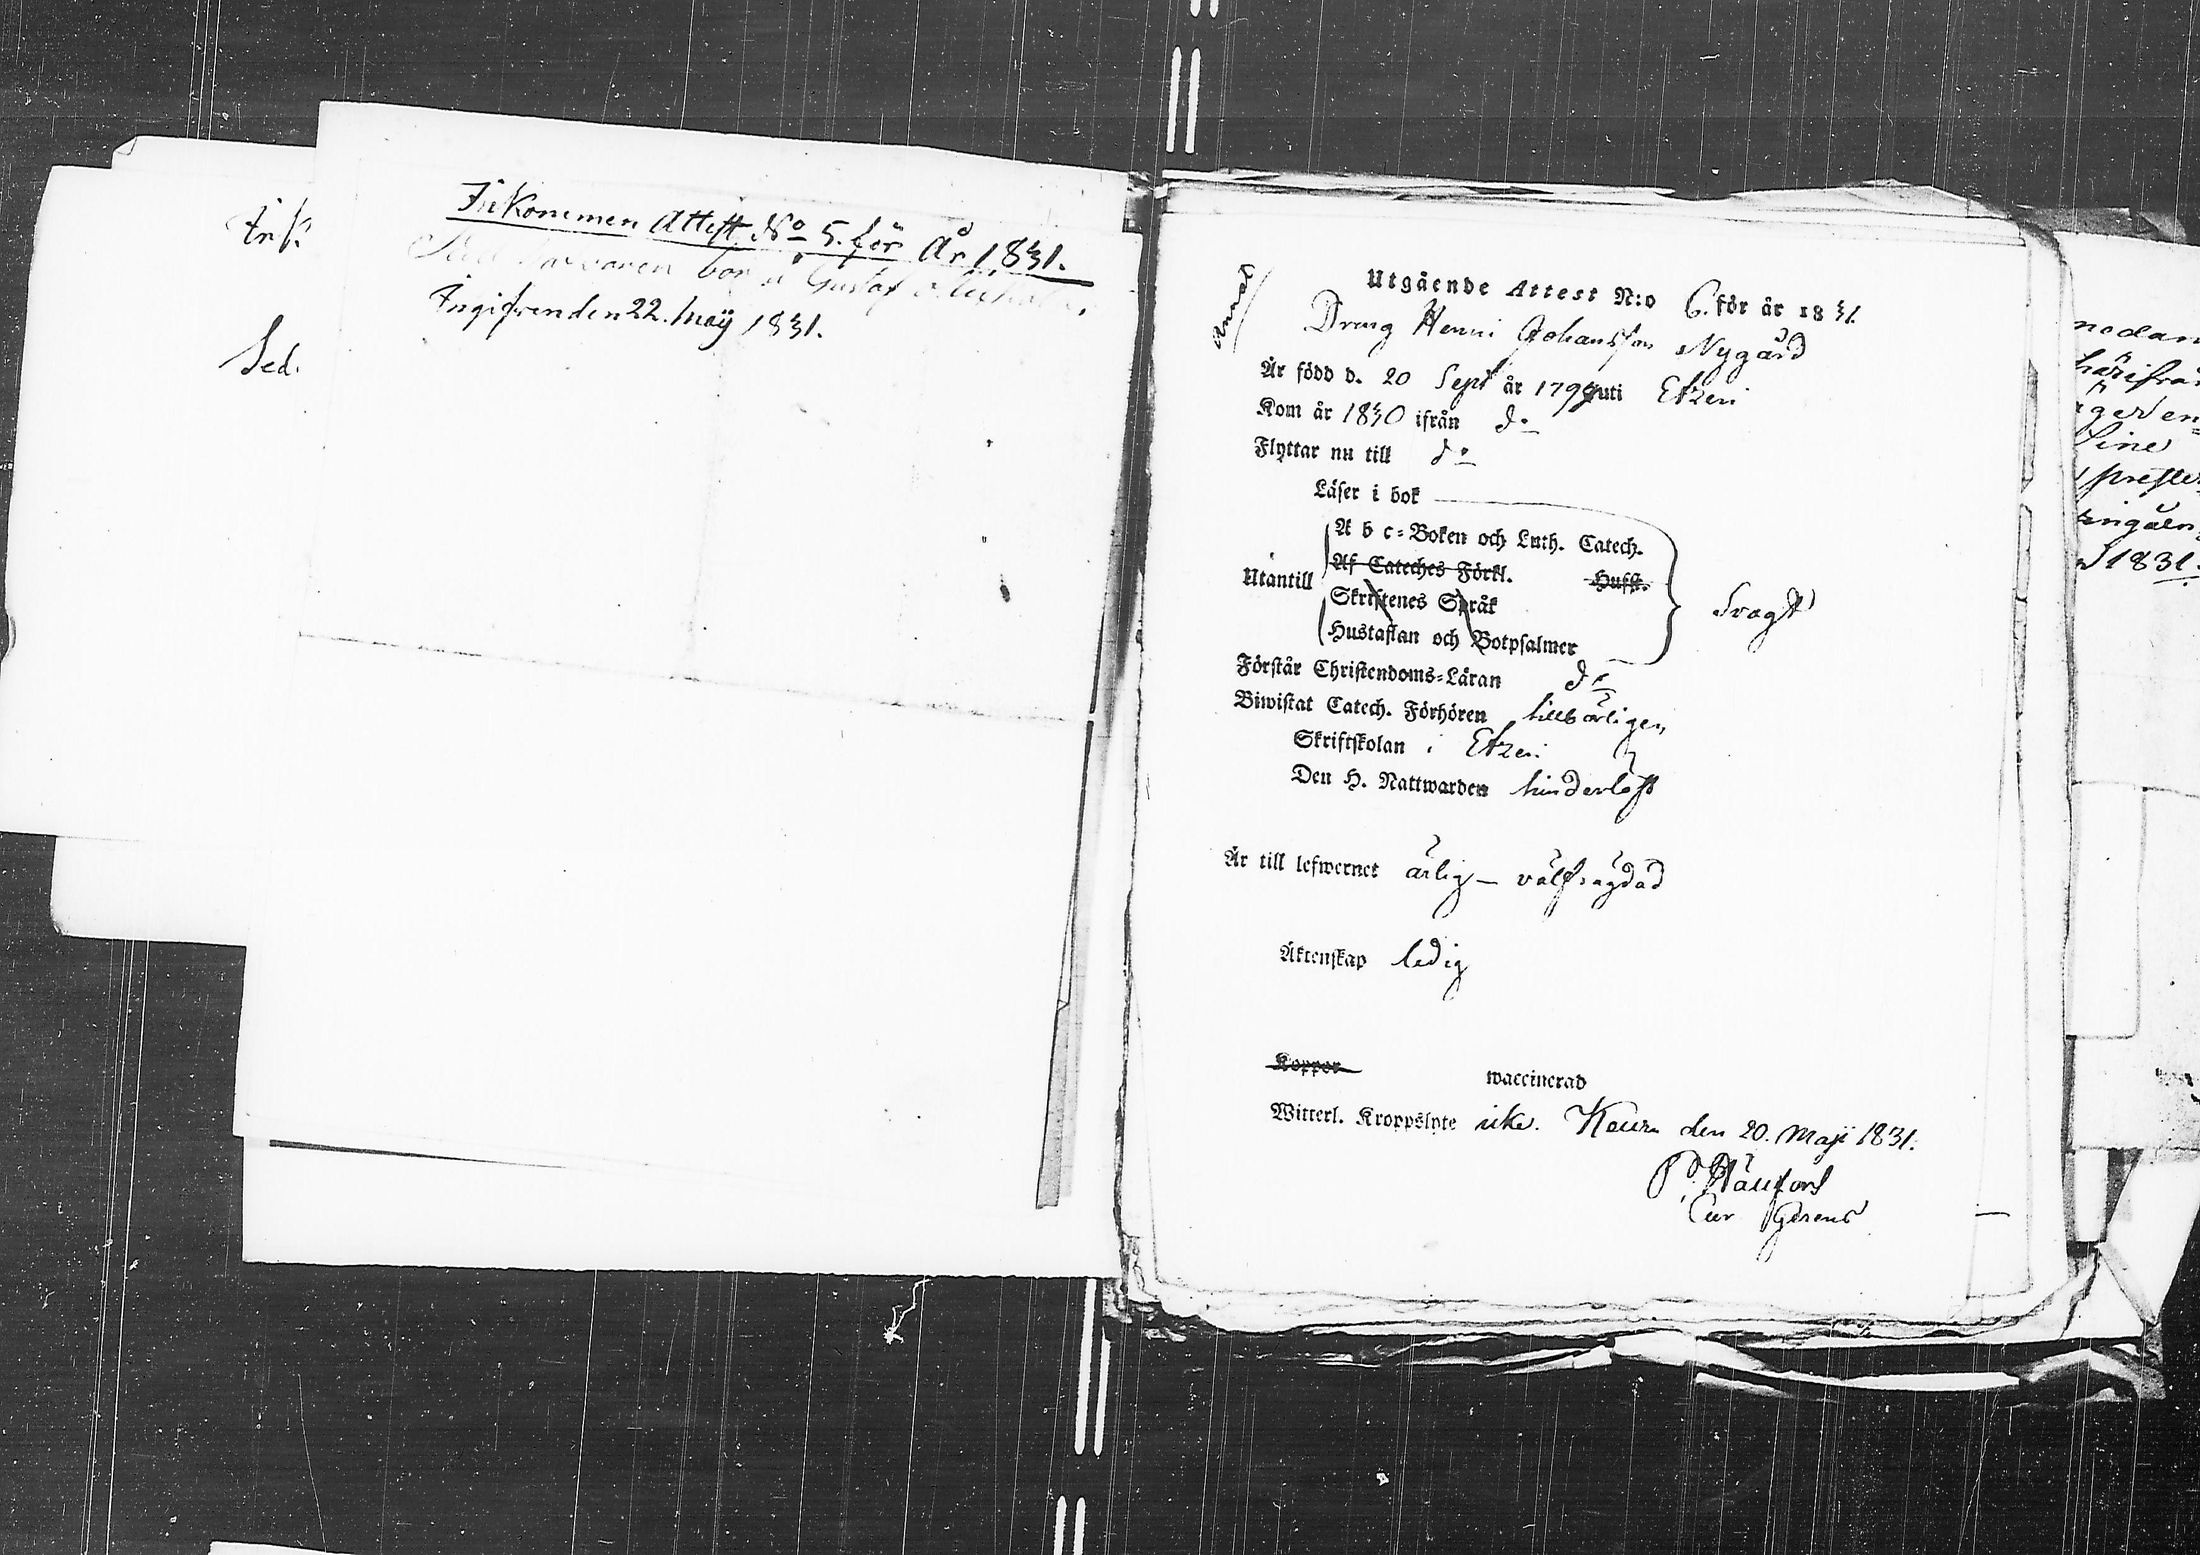 Ink.
Sed.
Inkommen Attest No 5. för År 1831.
bor å Gustaf
Ingifven den 22. Maij 1831.
Utgående Attest N:o 6. för år 1831.
Dreng Henric Johansson Nygård
Är född d. 20 Sept år 1797 uti Etzeri
Kom år 1830 ifrån do
Flyttar nu till do
Läser i bok
A b c-Boken och Luth. Catech.
Af Cateches Förkl. Husft.
Utantill
Skriftenes Språk
Svagt
Hustaflan och Botpsalmer
Förstår Christendoms-Läran do
Biwistat Catech. Förhören tillbörligen
Skriftskolan i Etzeri
Den H. Nattwarden hinderlöst
Är till lefwernet ärlig – välfrägdad
Äktenskap ledig
Koppor waccinerad
Witterl. Kroppslyte icke. Keuru den 20. Maji 1831.
Cur Gerens
nodan
härifrån
ger en
Sine
prester
ingåen
1831.